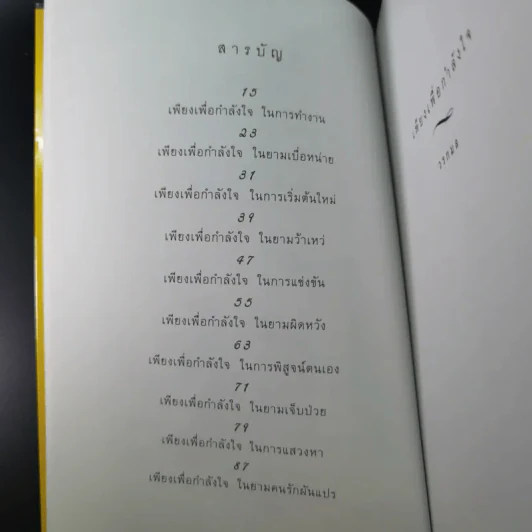 สารบัญ
15
เพียงเพื่อกำลังใจ ในการทำงาน
23
เพียงเพื่อกำลังใจ ในยามเบื่อหน่าย
31
เพียงเพื่อกำลังใจ ในการเริ่มต้นใหม่
39
เพียงเพื่อกำลังใจ ในยามว้าเหว่
47
เพียงเพื่อกำลังใจ ในการแข่งขัน
55
เพียงเพื่อกำลังใจ ในยามผิดหวัง
63
เพียงเพื่อกำลังใจ ในการพิสูจน์ตนเอง
71
เพียงเพื่อกำลังใจ ในยามเจ็บป่วย
79
เพียงเพื่อกำลังใจ ในการแสวงหา
87
เพียงเพื่อกำลังใจ ในยามคนรักผันแปร
เพียงเพื่อกำลังใจ